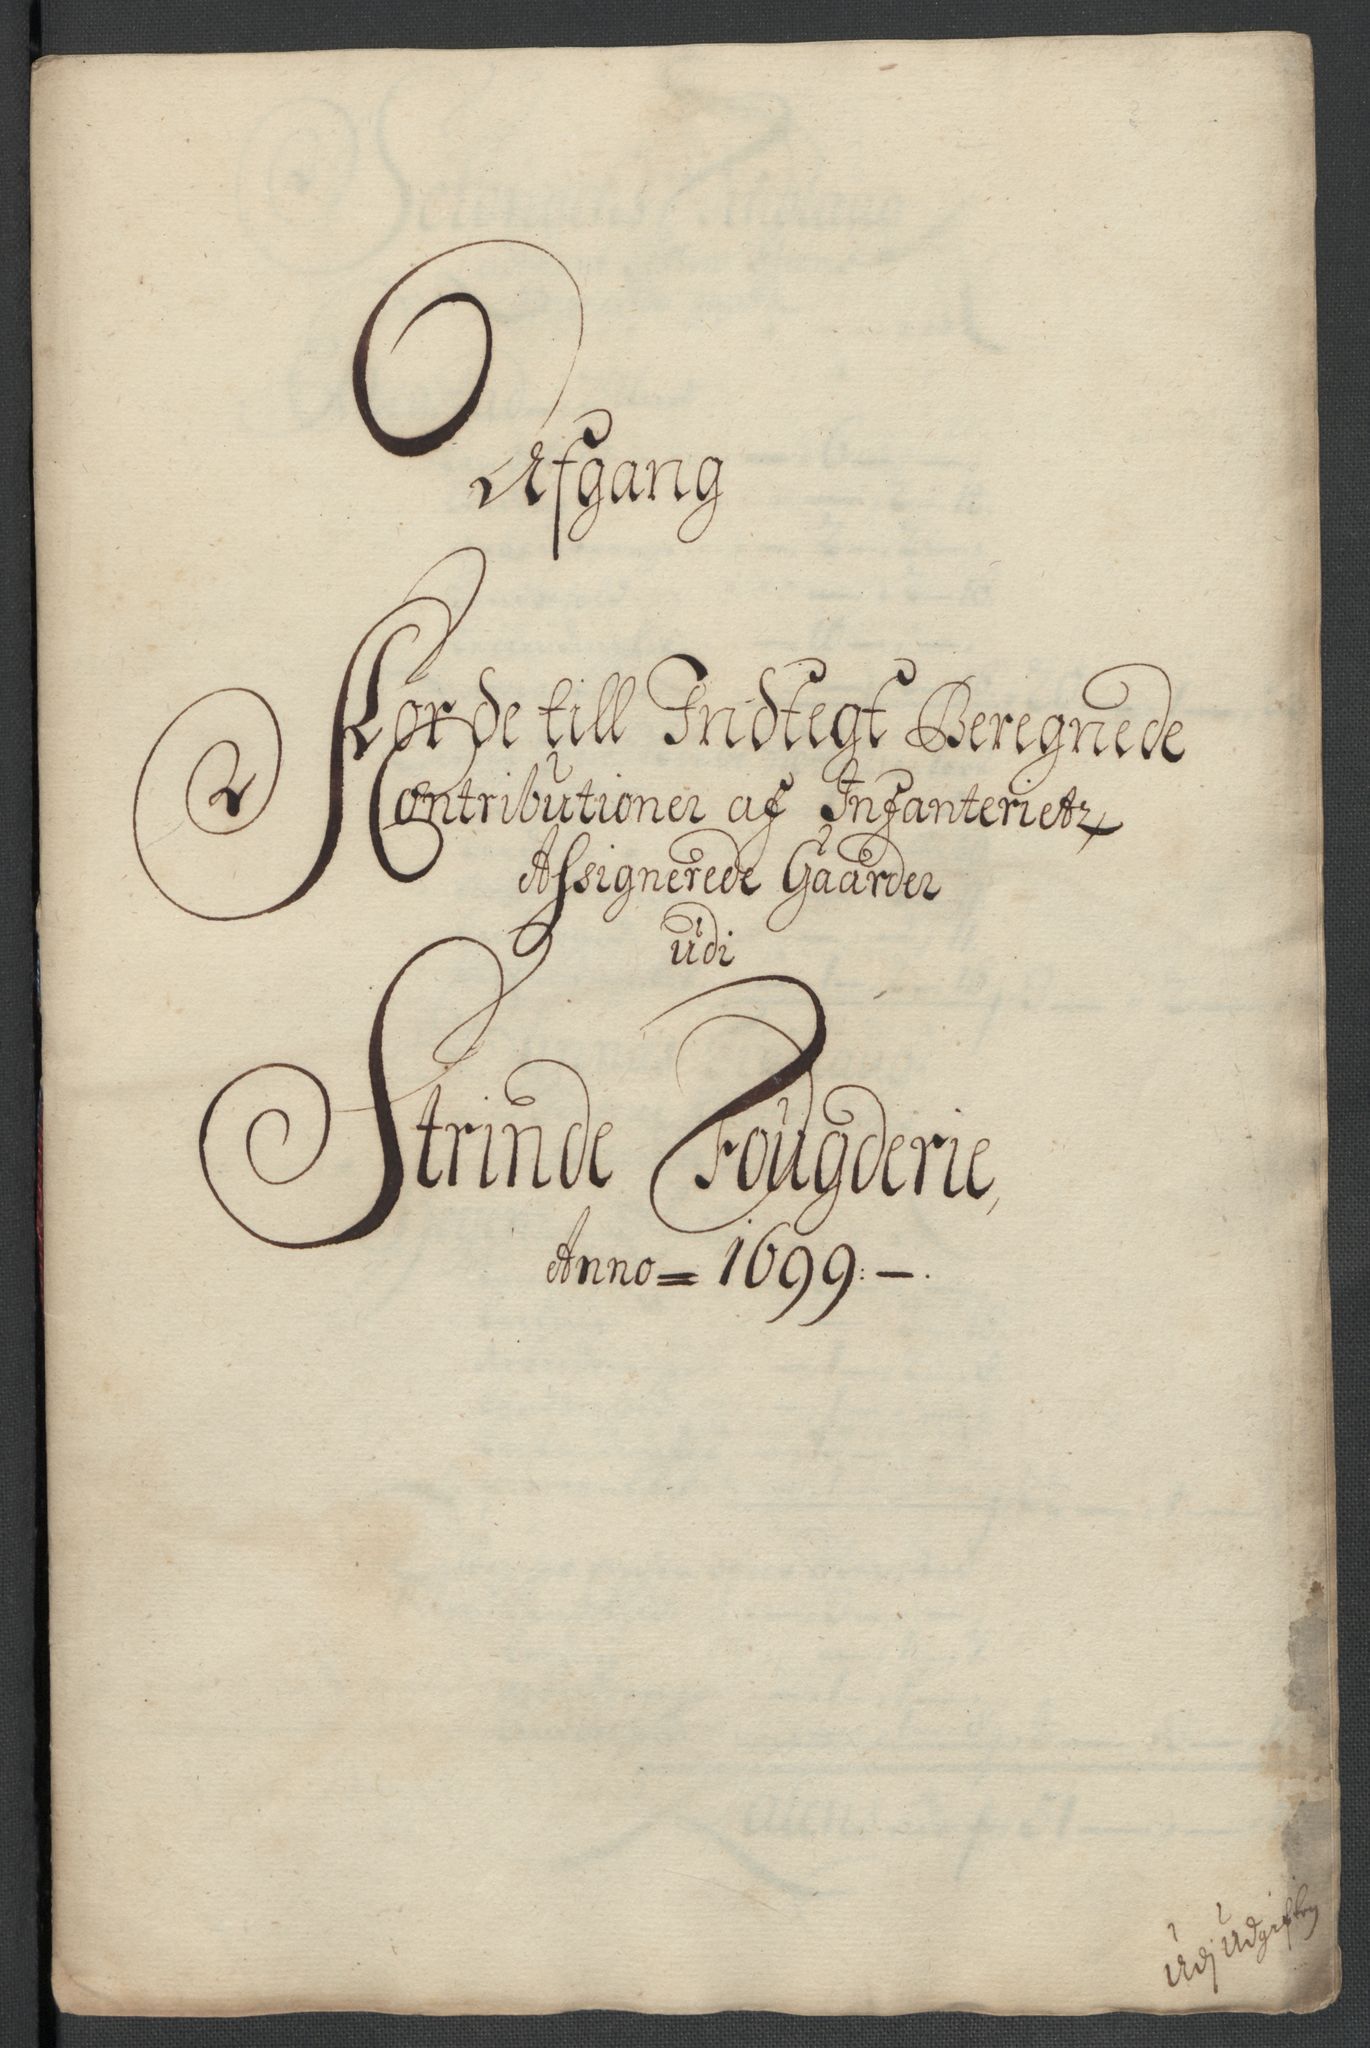 Afgang
For de till Indtegt Beregnede
Contributioner af Infanteriets
Assignerede Gaarder
udi
Strinde Fougderie,
Anno = 1699: —.
Udj Udgiften